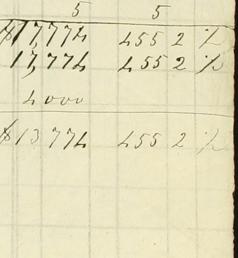 5 5
$17,774 455 2 %
17,774 455 2 %
4000
$13774 455 2 %